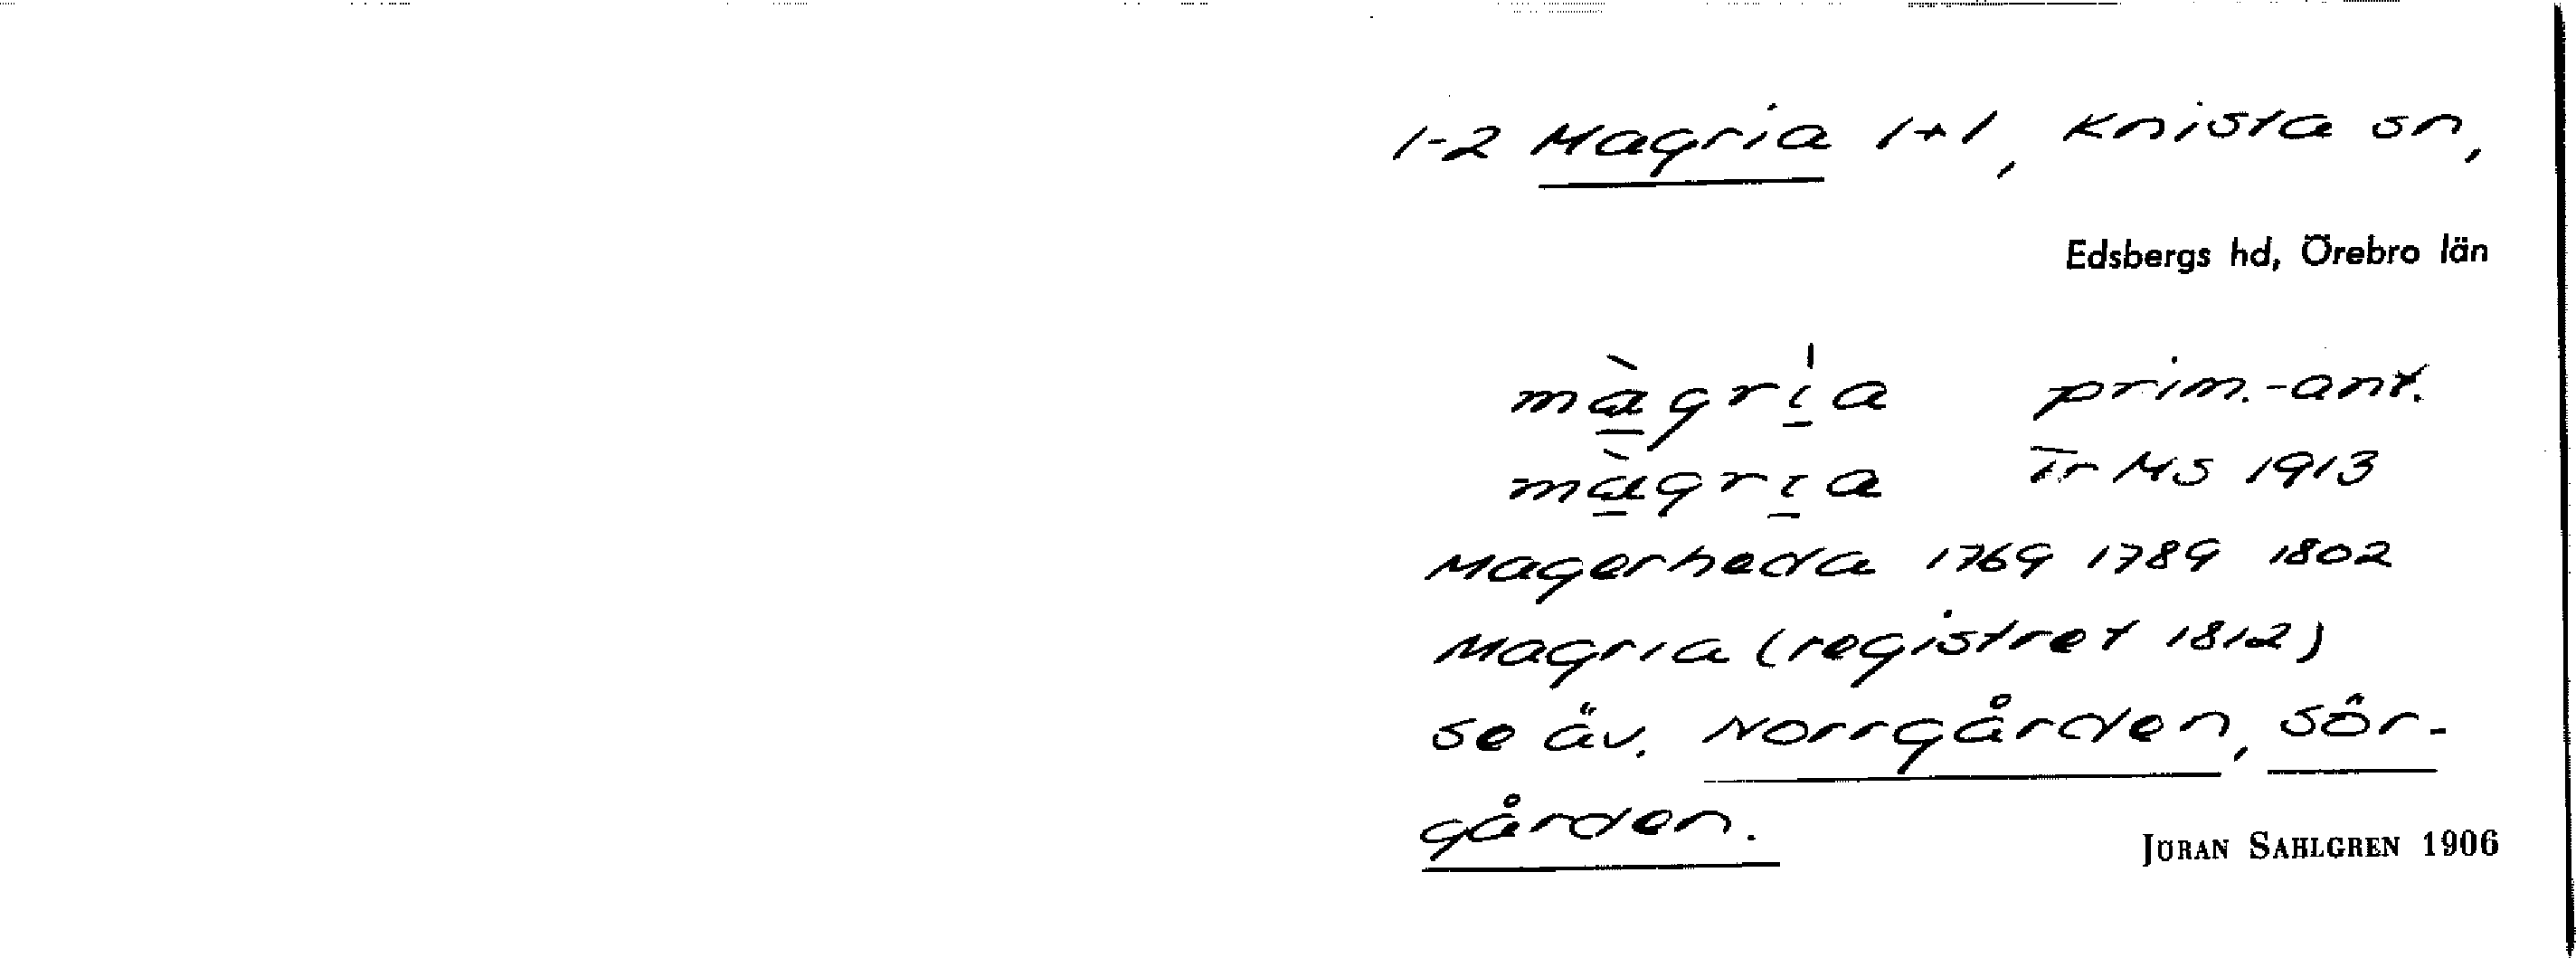 1-2 Magria 1+1, Knista sn,
Edsbergs hd, Örebro län
màgrı̍a prim.-ant.
màgrıa Tr MS 1913
Magerheda 1769 1789 1802
Magria (registret 1812)
se äv. Norrgården, Sör-
gården.
JÖRAN SAHLGREN 1906